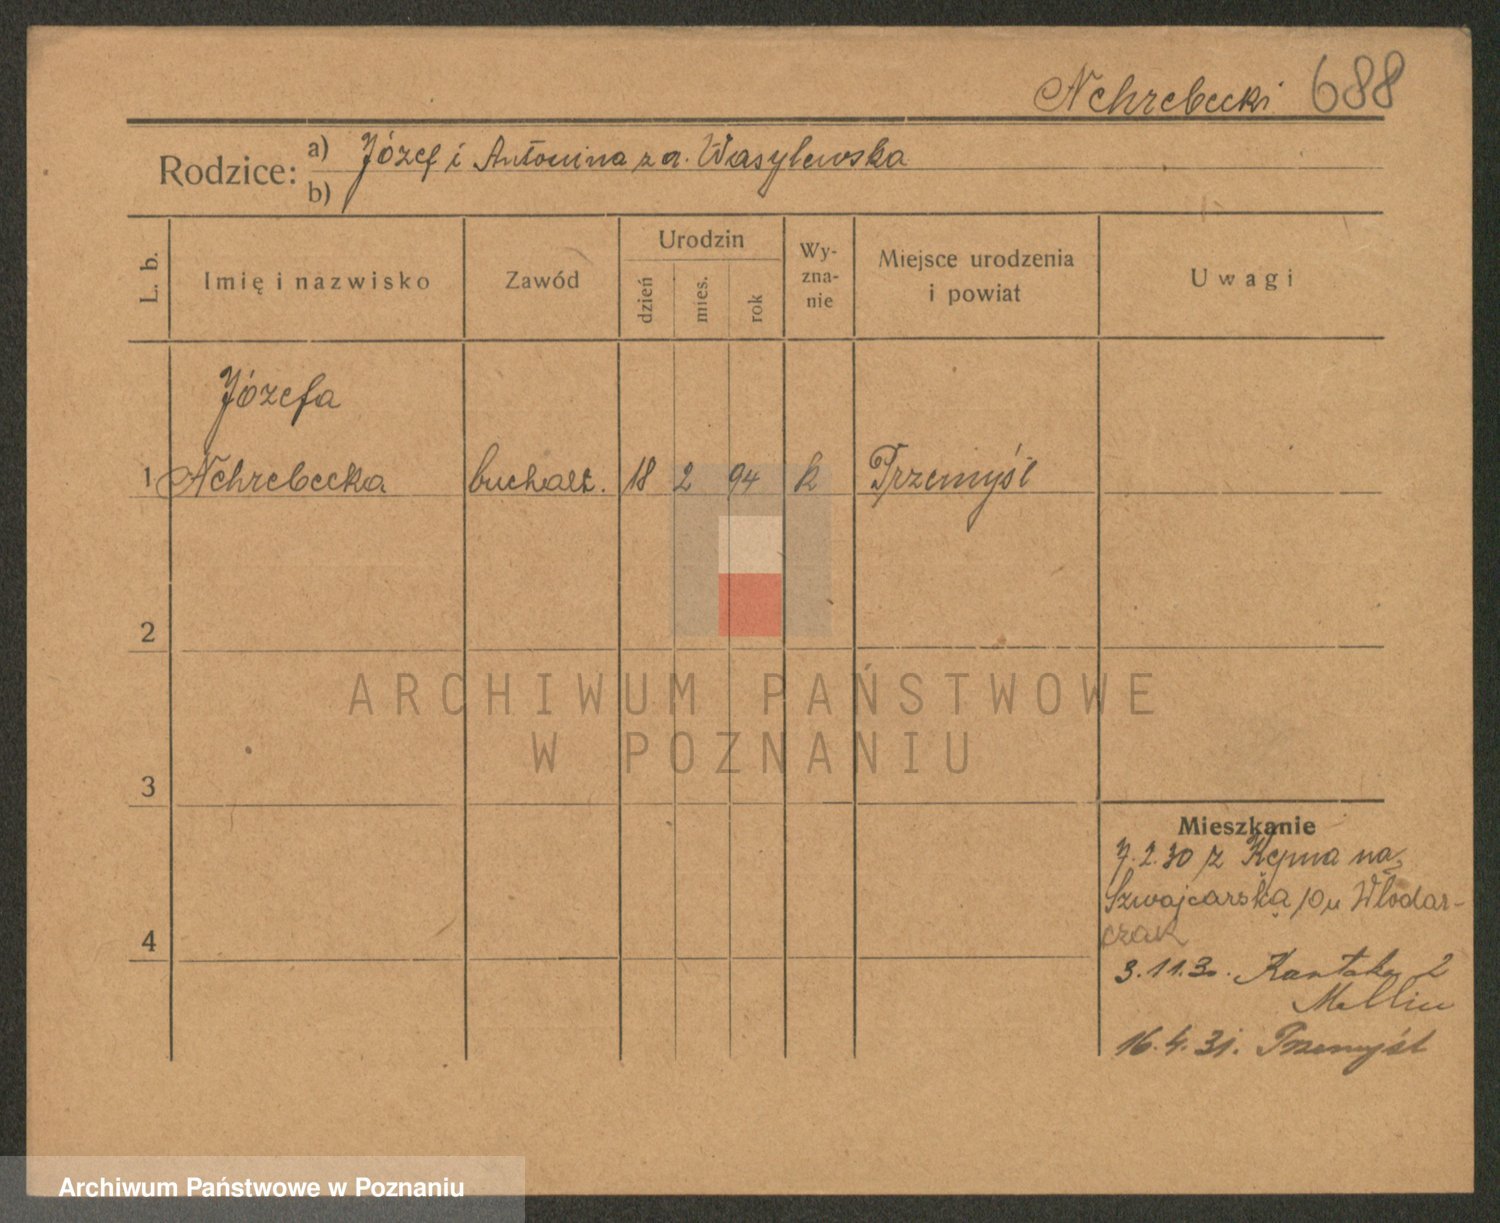 Nehrebecki 688
Rodzice:
a) Józef i Antonina z d. Wasylewska
b)
L. b.
Imię i nazwisko
Zawód
Urodzin
dzień
mies.
rok
Wy-
zna-
nie
Miejsce urodzenia
i powiat
Uwagi
Józefa
1 Nehrebecka buchalt. 18 2 94 k Przemyśl
2
3
4
Mieszkanie
7.2.30 z Kępna na
Szwajcarską 10 u Włodar-
czak
3.11.30. Kantaka 2
16.4.31. Przemyśl
ARCHIWUM PAŃSTWOWE
W POZNANIU
Archiwum Państwowe w Poznaniu